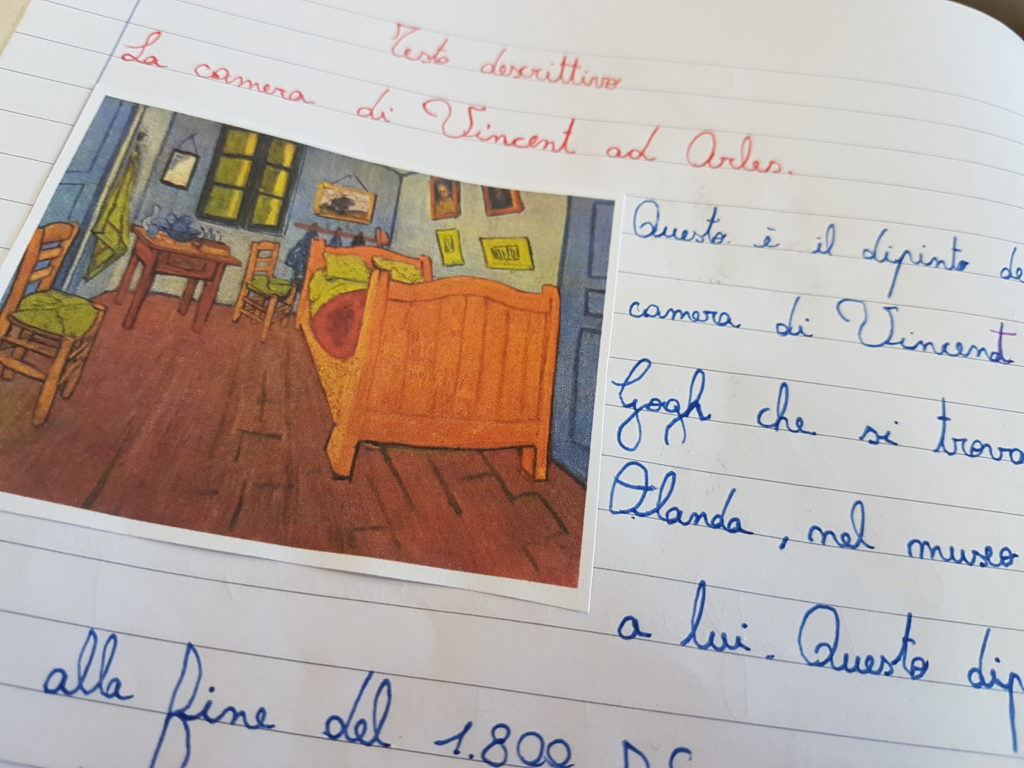 Testo descrittivo
La camera di Vincent ad Arles.
Questo è il dipinto de
camera di Vincent
Gogh che si trova
Olanda, nel museo
a lui. Questo dip
alla fine del 1.800 DC